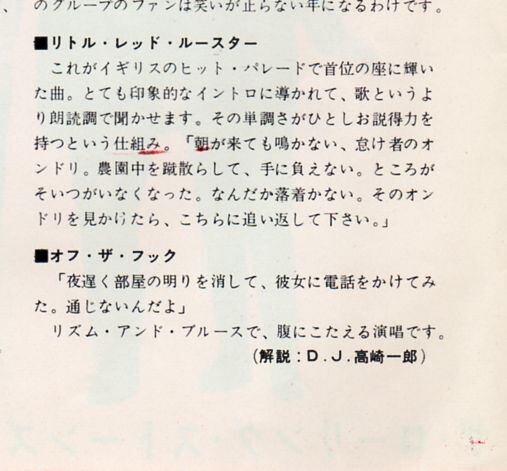 のグループのファンは笑いが止らない年になるわけです。
■リトル・レッド・ルースター
これがイギリスのヒット・パレードで首位の座に輝い
た曲。とても印象的なイントロに導かれて、歌というよ
り朗読調で聞かせます。その単調さがひとしお説得力を
持つという仕組み。「朝が来ても鳴かない、怠け者のオ
ンドリ。農園中を蹴散らして、手に負えない。ところが
そいつがいなくなった。なんだか落着かない。そのオン
ドリを見かけたら、こちらに追い返して下さい。」
■オフ・ザ・フック
「夜遅く部屋の明りを消して、彼女に電話をかけてみ
た。通じないんだよ」
リズム・アンド・ブルースで、腹にこたえる演唱です。
(解説：D.J.高崎一郎)